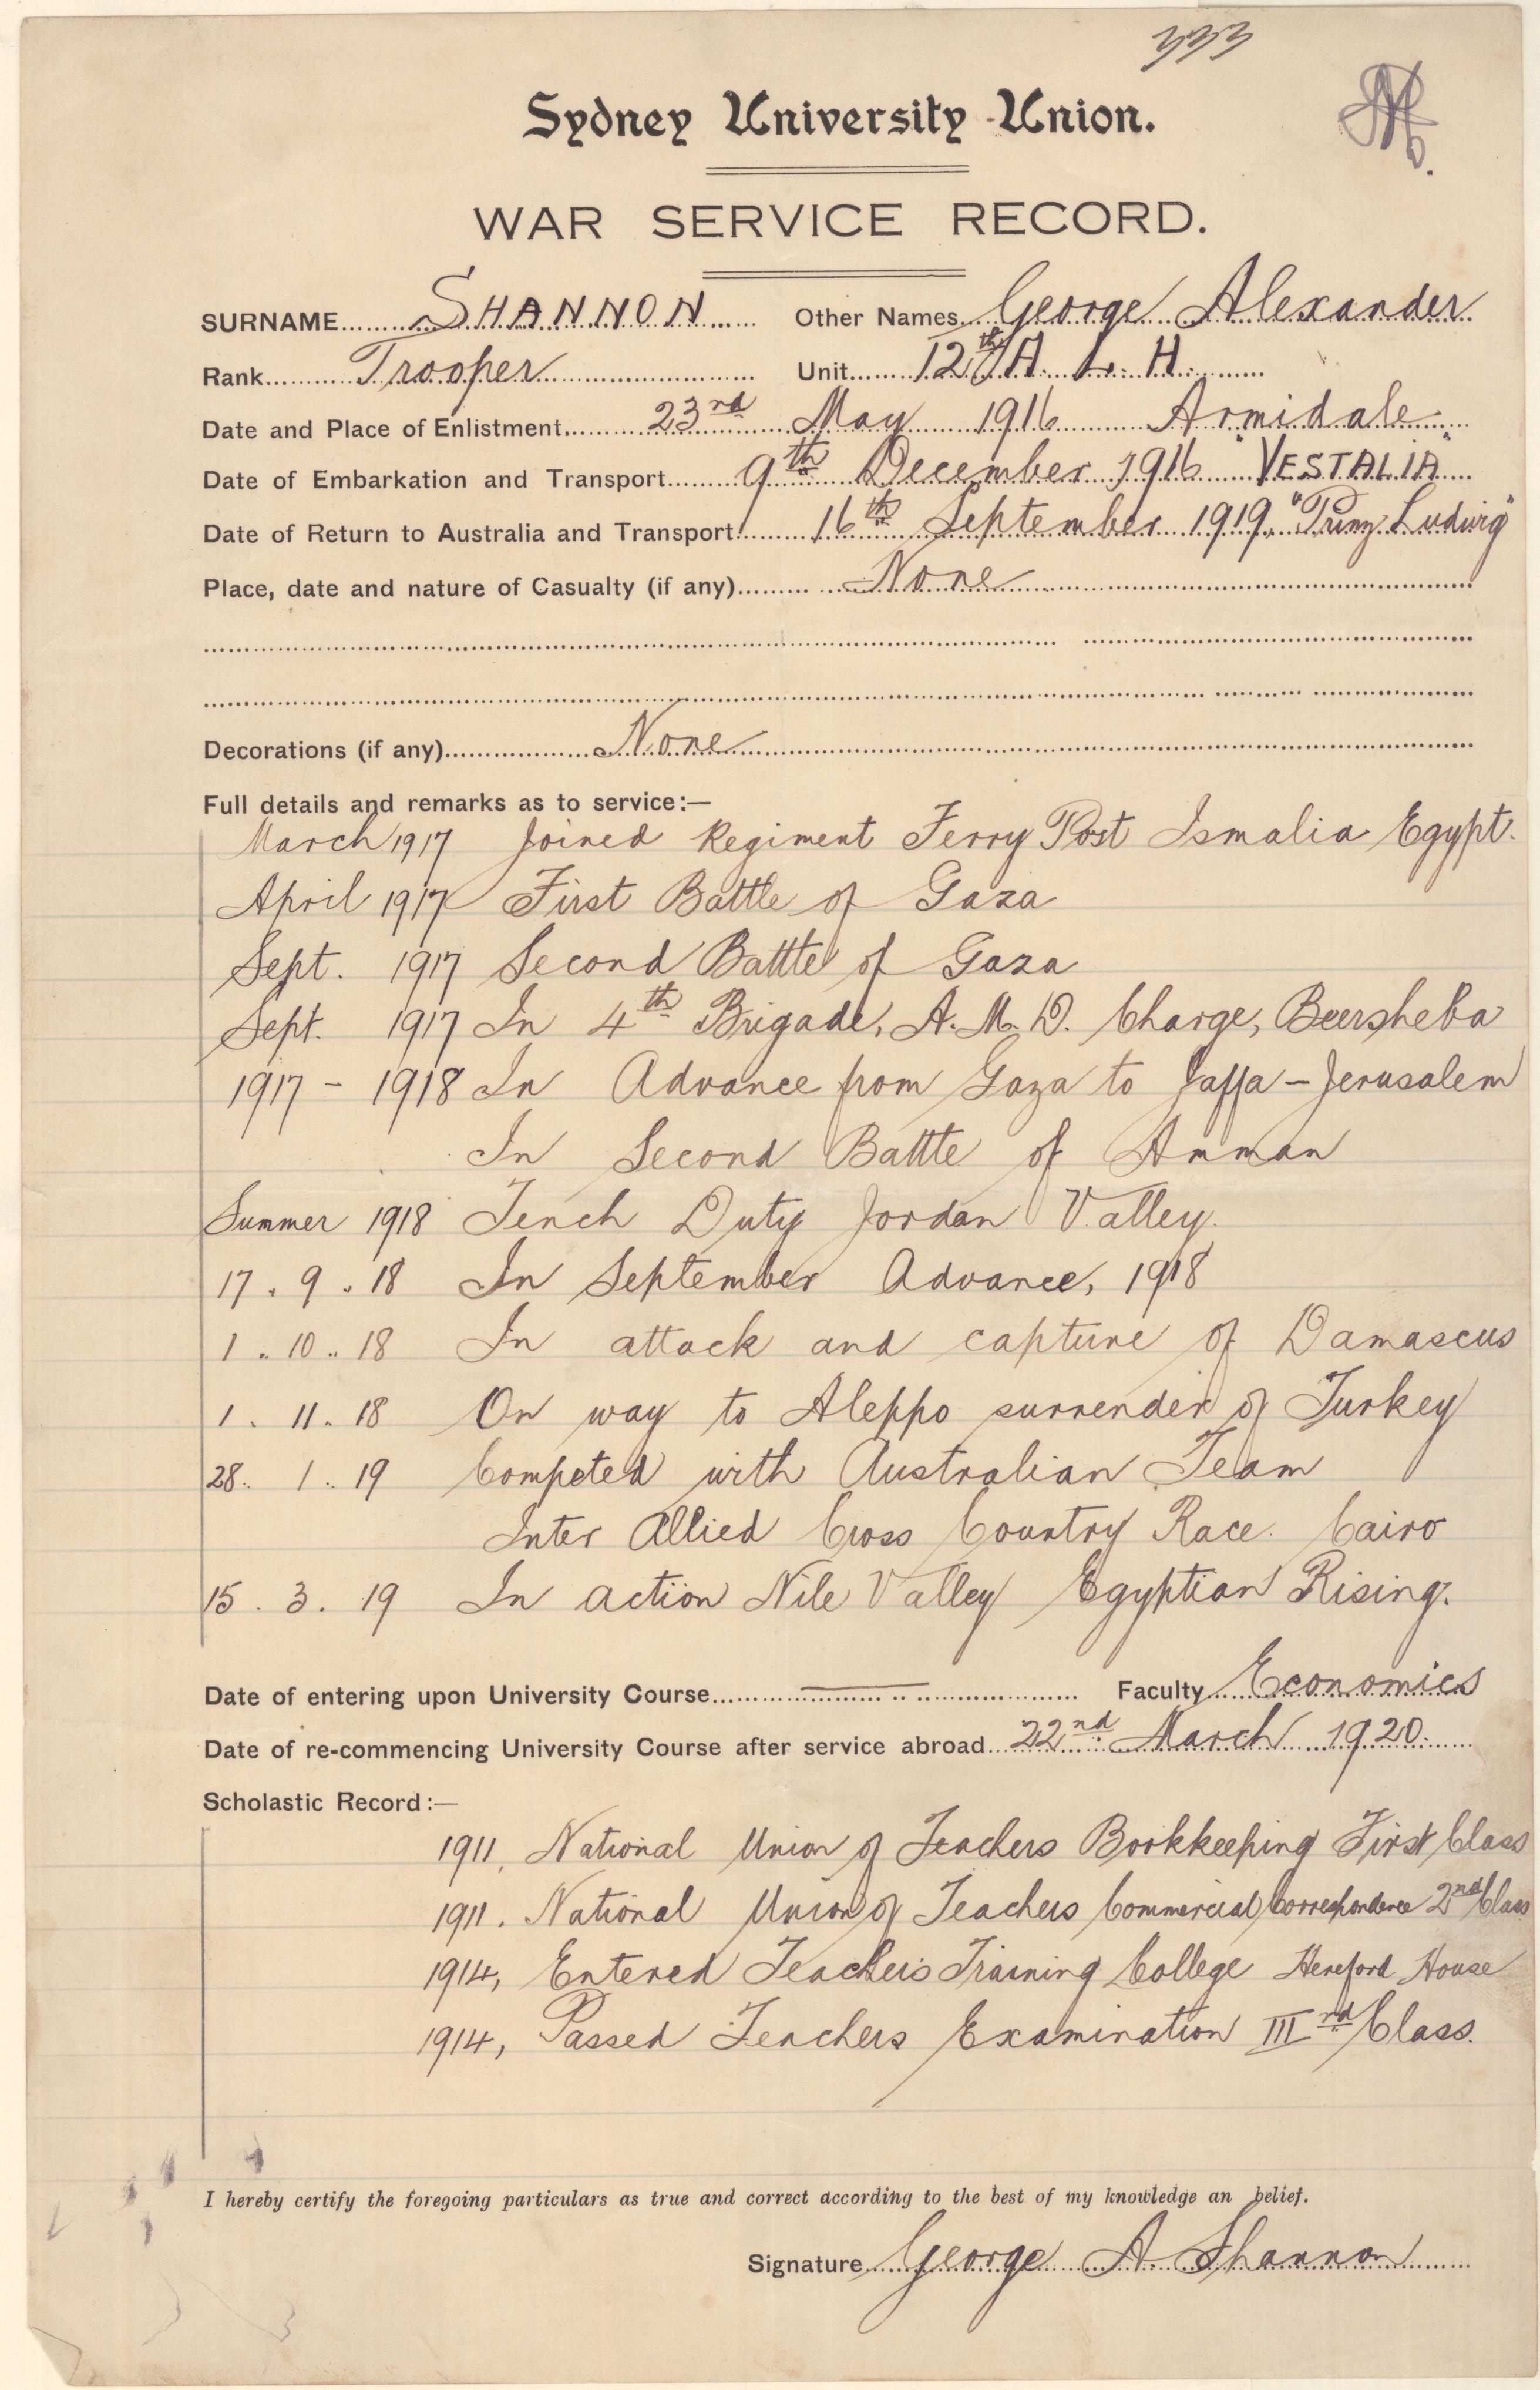 333
Sydney University Union.
WAR SERVICE RECORD.
SURNAME SHANNON Other Names George Alexander
Rank Trooper Unit 12th A. L. H.
Date and Place of Enlistment 23rd May 1916 Armidale
Date of Embarkation and Transport 9th December 1916 "VESTALIA"
Date of Return to Australia and Transport 16th September 1919. "Prinz Ludwig"
Place, date and nature of Casualty (if any) None
Decorations (if any) None
Full details and remarks as to service:—
March 1917 Joined Regiment Ferry Post Ismalia Egypt.
April 1917 First Battle of Gaza
Sept. 1917 Second Battle of Gaza
Sept. 1917 In 4th Brigade, A. M. D. Charge, Beersheba
1917 - 1918 In Advance from Gaza to Jaffa - Jerusalem
In Second Battle of Amman
Summer 1918 Tench Duty Jordan Valley.
17. 9. 18 In September Advance, 1918
1. 10. 18 In attack and capture of Damascus
1. 11. 18 On way to Aleppo surrender of Turkey
28. 1. 19 Competed with Australian Team
Inter Allied Cross Country Race. Cairo
15. 3. 19 In action Nile Valley Egyptian Rising.
Date of entering upon University Course — Faculty Economics
Date of re-commencing University Course after service abroad 22nd March 1920.
Scholastic Record:—
1911, National Union of Teachers Bookkeeping First Class
1911. National Union of Teachers Commercial Correspondence 2nd Class
1914, Entered Teachers Training College Hereford House
1914, Passed Teachers Examination IIIrd Class.
I hereby certify the foregoing particulars as true and correct according to the best of my knowledge an belief.
Signature George A. Shannon